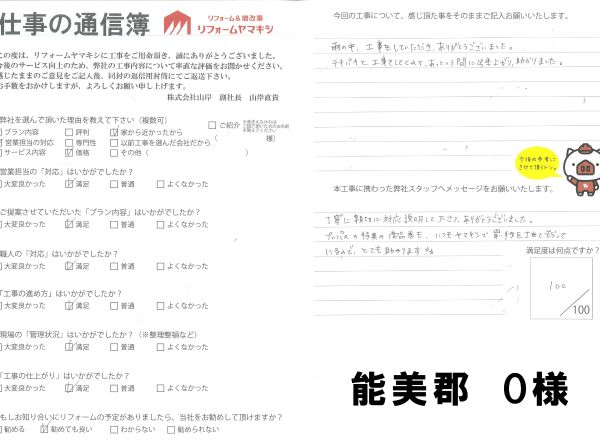 仕事の通信簿
リフォーム&増改築
リフォームヤマキシ
この度は、リフォームヤマキシに工事をご用命頂き、誠にありがとうございました。
今後のサービス向上のため、弊社の工事内容について率直な評価をお聞かせください。
感じたままのご意見をご記入後、同封の返信用封筒にてご返送下さい。
お手数をおかけしますが、よろしくお願い申し上げます。
株式会社山岸 副社長 山岸直貴
弊社を選んで頂いた理由を教えて下さい(複数可)
プラン内容 評判 家から近かったから ご紹介
営業担当の対応 専門性 以前工事を選んだ会社だから ( 様)
サービス内容 価格 その他( )
営業担当の「対応」はいかがでしたか?
大変良かった 満足 普通 よくなかった
ご提案させていただいた「プラン内容」はいかがでしたか?
大変良かった 満足 普通 よくなかった
職人の「対応」はいかがでしたか?
大変良かった 満足 普通 よくなかった
「工事の進め方」はいかがでしたか?
大変良かった 満足 普通 よくなかった
現場の「管理状況」はいかがでしたか?(※整理整頓など)
大変良かった 満足 普通 よくなかった
「工事の仕上がり」はいかがでしたか?
大変良かった 満足 普通 よくなかった
もしお知り合いにリフォームの予定がありましたら、当社をお勧めして頂けますか?
勧める 勧めても良い わからない 勧められない
今回の工事について、感じ頂た事をそのままご記入お願いいたします。
雨の中、工事をしていただき、ありがとうございました。
テキパキと工事をしてくれて、あっという間に出来上がり、助かりました。
今後の参考に
させて頂くトン。
本工事に携わった弊社スタッフへメッセージをお願いいたします。
丁寧に対応、説明して下さり、ありがとうございました。
の特典の商品券も、いつもヤマキシで
いるので、とても助かります
満足度は何点ですか?
100
/100
能美郡 O様